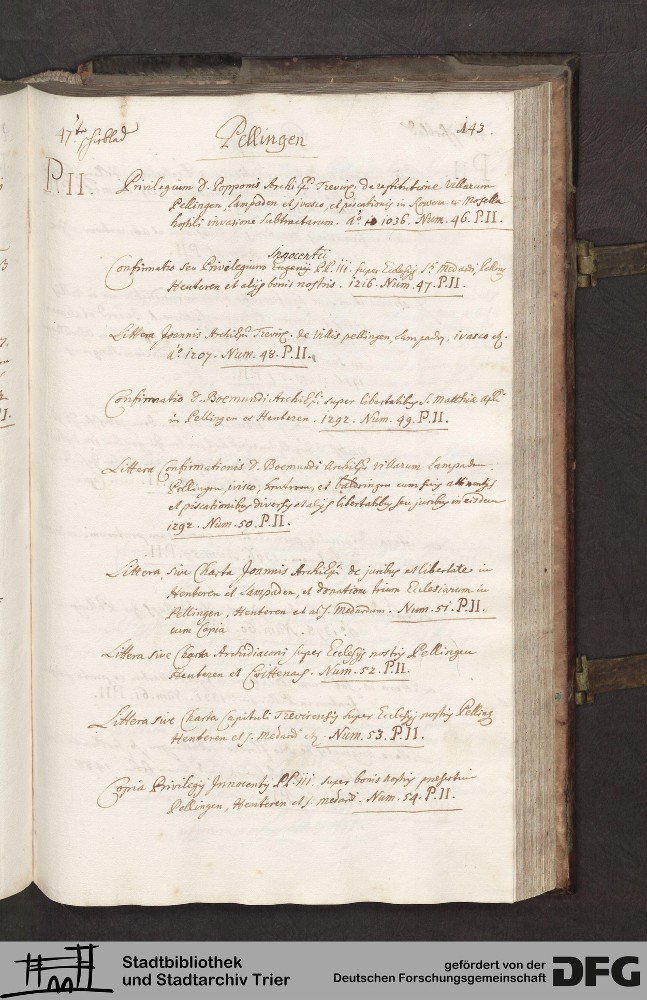 47te schublad
Pellingen
143
P.II.
Privilegium D. Popponis Archiepi Trevir. de restitutione villarum
Pellingen Lampaden et jvasco, et piscationis in Rovera et Mosella
hostili invasione subtractarum. aō 1036. Num. 46. P.II.
Innocentii
Confirmatio seu Privilegium Eugenij P.P. III. super Ecclesijs St. Medardi, Pelling
Henteren et alijs bonis nostris. 1216. Num. 47. P.II.
Littera Joannis Archiepi Trevir. de villis pellingen, Lampaden, ivasco etc.
aō. 1207. Num. 48. P.II.
Confirmatio D. Boemundi Archiepi super libertatibus S. Matthiæ apli
in Pellingen et Henteren. 1292. Num. 49. P.II.
Littera Confirmationis D. Boemundi Archiepi villarum Lampaden
Pellingen, ivisco, henteren, et baldringen cum suis attinentijs
et piscationibus diversis et alijs libertatibus seu juribus in eisdem
1292. Num. 50. P.II.
Littera sive Charta Joannis Archiepi de juribus et libertate in
Henteren et Lampaden, et donatione trium Ecclesiarum in
Pellingen, Henteren et ad S. Medardum. Num. 51. P.II.
cum Copia
Littera sive Charta Archidiaconi super Ecclesijs nostris Pellingen
Henteren et Crittenach. Num. 52. P.II.
Littera sive Charta Capituli Trevirensis super Ecclesijs nostris Pelling
Henteren et S. Medardi etc. Num. 53. P.II.
Copia Privilegij Innocentij P.P. III. super bonis nostris præsertim
Pellingen, Henteren et S. medardi. Num. 54. P.II.
Stadtbibliothek
und Stadtarchiv Trier
gefördert von der
Deutschen Forschungsgemeinschaft
DFG